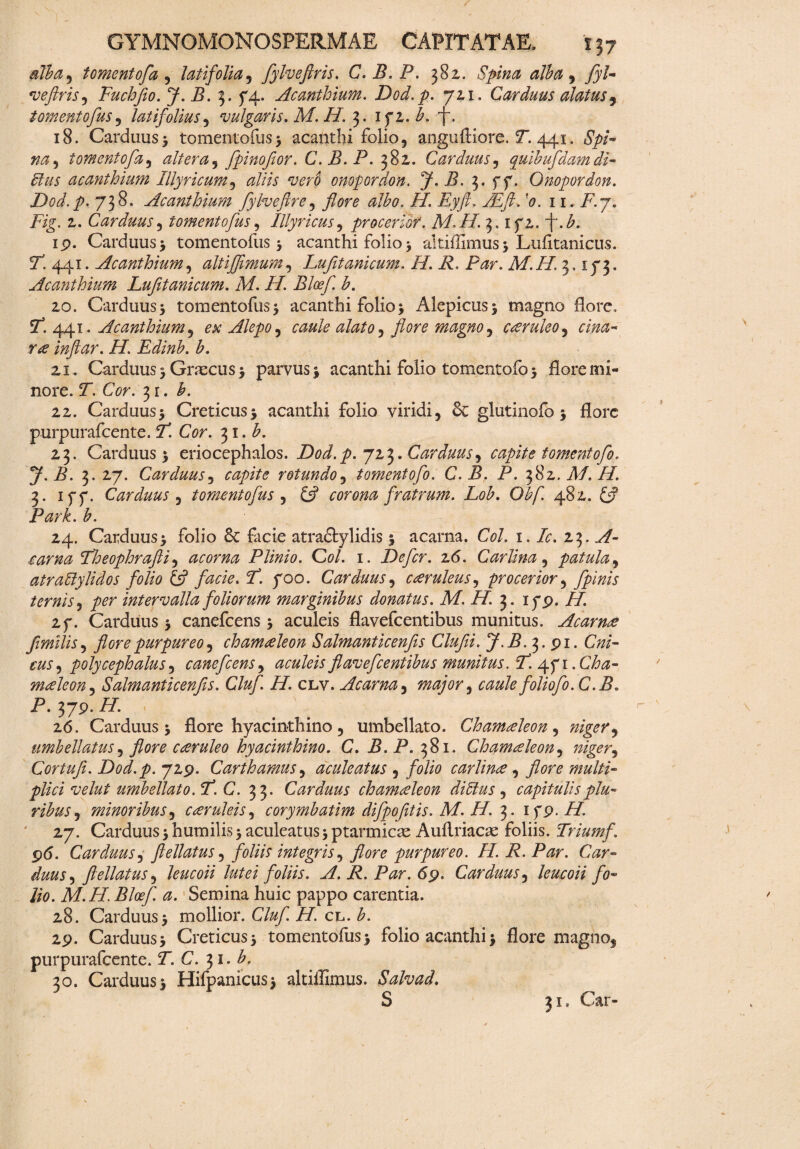 GYMNOMONOSPERMAE CAPITATAE. 137
alba, tomentoſa, latifolia, ſylveſtris. C. B. P. 382. Spina alba, ſyl-
veſtris, Fuchſio. J. B. 3. 54. Acanthium. Dod. p. 721. Carduus alatus,
tomentoſus, latifolius, vulgaris. M. H. 3. 152. b. †.
18. Carduus; tomentoſus; acanthi folio, anguſtiore. T. 441. Spi-
na, tomentoſa, altera, ſpinoſior. C. B. P. 382. Carduus, quibuſdam di-
ctus acanthium Illyricum, aliis verò onopordon. J. B. 3. 55. Onopordon.
Dod. p. 738. Acanthium ſylveſtre, flore albo. H. Eyſt. Æſt. 'o. 11. F. 7.
Fig. 2. Carduus, tomentoſus, Illyricus, procerior. M. H. 3. 152. †. b.
19. Carduus; tomentoſus; acanthi folio; altiſſimus; Luſitanicus.
T. 441. Acanthium, altiſſimum, Luſitanicum. H. R. Par. M. H. 3. 153.
Acanthium Luſitanicum. M. H. Blœſ. b.
20. Carduus; tomentoſus; acanthi folio; Alepicus; magno flore.
T. 441. Acanthium, ex Alepo, caule alato, flore magno, cæruleo, cina-
ræ inſtar. H. Edinb. b.
21. Carduus; Græcus; parvus; acanthi folio tomentoſo; flore mi-
nore. T. Cor. 31. b.
22. Carduus; Creticus; acanthi folio viridi, & glutinoſo; flore
purpuraſcente. T. Cor. 31. b.
23. Carduus; eriocephalos. Dod. p. 723. Carduus, capite tomentoſo.
J. B. 3. 27. Carduus, capite rotundo, tomentoſo. C. B. P. 382. M. H.
3. 155. Carduus, tomentoſus, & corona fratrum. Lob. Obſ. 482. &
Park. b.
24. Carduus; folio & facie atractylidis; acarna. Col. 1. Ic. 23. A-
carna Theophraſti, acorna Plinio. Col. 1. Deſcr. 26. Carlina, patula,
atractylidos folio & facie. T. 500. Carduus, cæruleus, procerior, ſpinis
ternis, per intervalla foliorum marginibus donatus. M. H. 3. 159. H.
25. Carduus; caneſcens; aculeis flaveſcentibus munitus. Acarnæ
ſimilis, flore purpureo, chamæleon Salmanticenſis Cluſii. J. B. 3. 91. Cni-
cus, polycephalus, caneſcens, aculeis flaveſcentibus munitus. T. 451. Cha-
mæleon, Salmanticenſis. Cluſ. H. CLV. Acarna, major, caule folioſo. C. B.
P. 379. H.
26. Carduus; flore hyacinthino, umbellato. Chamæleon, niger,
umbellatus, flore cæruleo hyacinthino. C. B. P. 381. Chamæleon, niger,
Cortuſi. Dod. p. 729. Carthamus, aculeatus, folio carlinæ, flore multi-
plici velut umbellato. T. C. 33. Carduus chamæleon dictus, capitulis plu-
ribus, minoribus, cæruleis, corymbatim diſpoſitis. M. H. 3. 159. H.
27. Carduus; humilis; aculeatus; ptarmicæ Auſtriacæ foliis. Triumf.
96. Carduus, ſtellatus, foliis integris, flore purpureo. H. R. Par. Car-
duus, ſtellatus, leucoii lutei foliis. A. R. Par. 69. Carduus, leucoii fo-
lio. M. H. Blœſ. a. Semina huic pappo carentia.
28. Carduus; mollior. Cluſ. H. CL. b.
29. Carduus; Creticus; tomentoſus; folio acanthi; flore magno,
purpuraſcente. T. C. 31. b.
30. Carduus; Hiſpanicus; altiſſimus. Salvad.
S 31. Car-